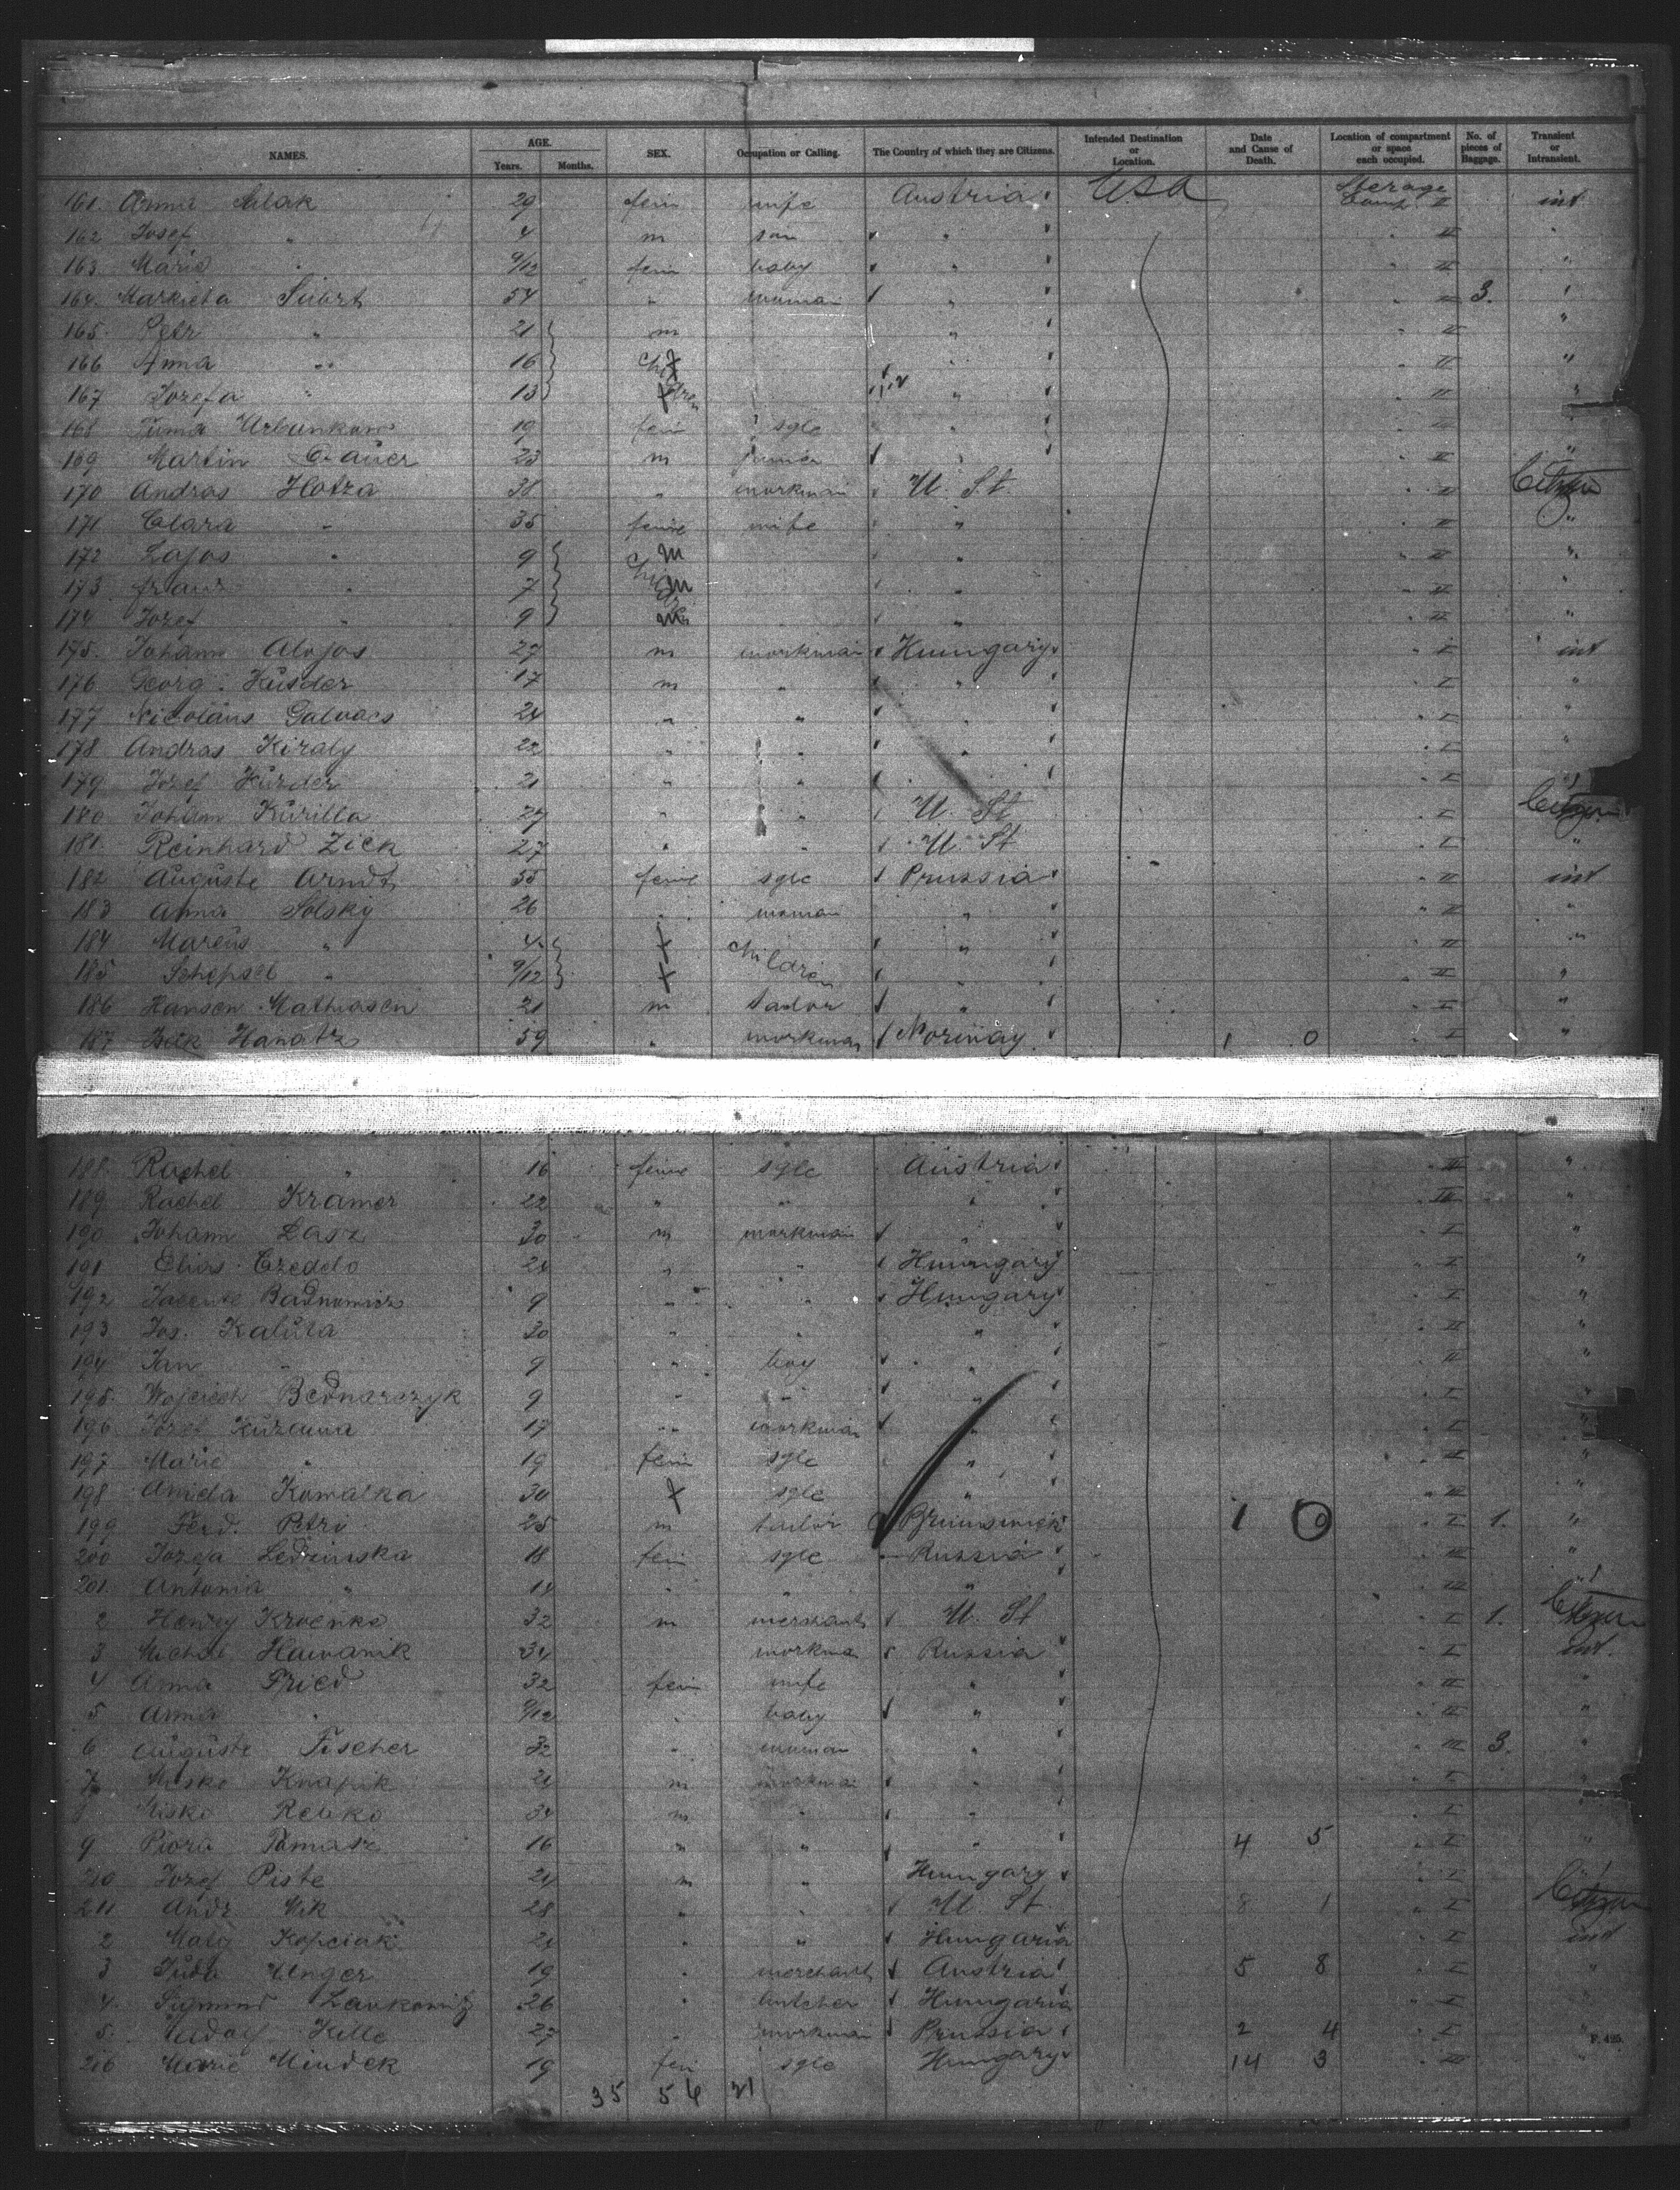 NAMES. AGE. Years. Months. SEX. Occupation or Calling. The Country of which they are Citizens. Intended Destination or Location. Date and Cause of Death. Location of compartment or space each occupied. No. of pieces of Baggage. Transient or Intransient.
161. Anna Salak 29 fem wife Austria USA Sterage Comp. II int
162 Josef " 4 m son " " II "
163 Marie " 9/12 fem baby " " II "
164. Marketa 54 " woman " " 3. "
165. Petr " 21 m " " II "
166 Anna " 16 children " " II "
167 Josefa " 13 " " II "
168 Urbankow 19 fem sgle " "
169 Martin 23 m " " II "
170 Andras Hotza 38 " workman U. St. " II Citizen
171 Clara " 35 feme wife " " II "
172 Lajos " 9 children m " " II "
173 Franz " 7 m " " II "
174 Jozef " 9 m " " II "
175. Johann Alojos 27 m workman Hungary " I int
176 Georg. Küsder 17 m " " " I "
177 Nicolaus Galvacs 24 " " " " I "
178 Andras Kiraly 22 " " " " I "
179 Jozef Kürder 21 " " " " I "
180 Johann Kürilla 27 " " U. St " I Citizen
181. Reinhard Zick 27 " " U. St " I "
182 Auguste Arndt 55 feme sgle Prussia " II int
183 Anna Solsky 26 " woman " " II "
184 Marcus " 4 children " " II "
185 Schepsel " 9/12 " " II "
186 Hansen Mathiasen 21 m tailor " " I "
187 Hanatz 59 " workman Norway 1 0 " I "
188. Rachel " 16 feme sgle Austria " III "
189 Rachel Kramer 22 " " " " "
190 Johann Lasz 30 m workman " " I "
191 Elias Czeddo 24 " " Hungary " I "
192 Badnowicz 9 " " Hungary " I "
193 Jos. Kaluza 30 " " " " II "
194 Jan " 9 " boy " " II "
195. Wojciech Bednarczyk 9 " " " " I "
196 Josef Kuzawa 17 " workman " " I "
197 Marie " 19 fem sgle " " "
198 Aniela Kowalka 30 sgle " " III "
199 Ferd. Petri 25 m tailor Brunswick 1 0 " I 1. "
200 Jozefa Ledzinska 18 fem sgle Russia " III "
201. Antonia " 14 " " " " III "
2 Henry Kroenke 32 m merchant U. St " I 1. Citizen
3 Michal Hawanik 34 workman Russia " I int.
4 Anna Fried 32 fem wife " " II "
5 Anna " 9/12 " baby " " II "
6 Auguste Fischer 32 " woman " " III 3. "
7 Misko Knapik 21 m workman " " I "
8 Misko Rebko 34 m " " " I "
9 Tomasz 16 " " " 4 5 " I "
210 Jozef Piste 21 m " Hungary " I "
211 Andr. Wik 28 " " U. St. 8 1 " I Citizen
2 Kopciak 21 " " Hungaria " I int
3 Juda Unger 19 " merchant Austria 5 8 " I "
4. Sigmund Zankowitz 26 " butcher Hungaria " I "
5. Kille 27 " workman Prussia 2 4 " I "
216 Marie Mindek 19 fem sgle Hungary 14 3 " III "
35 56 21
F. 425.